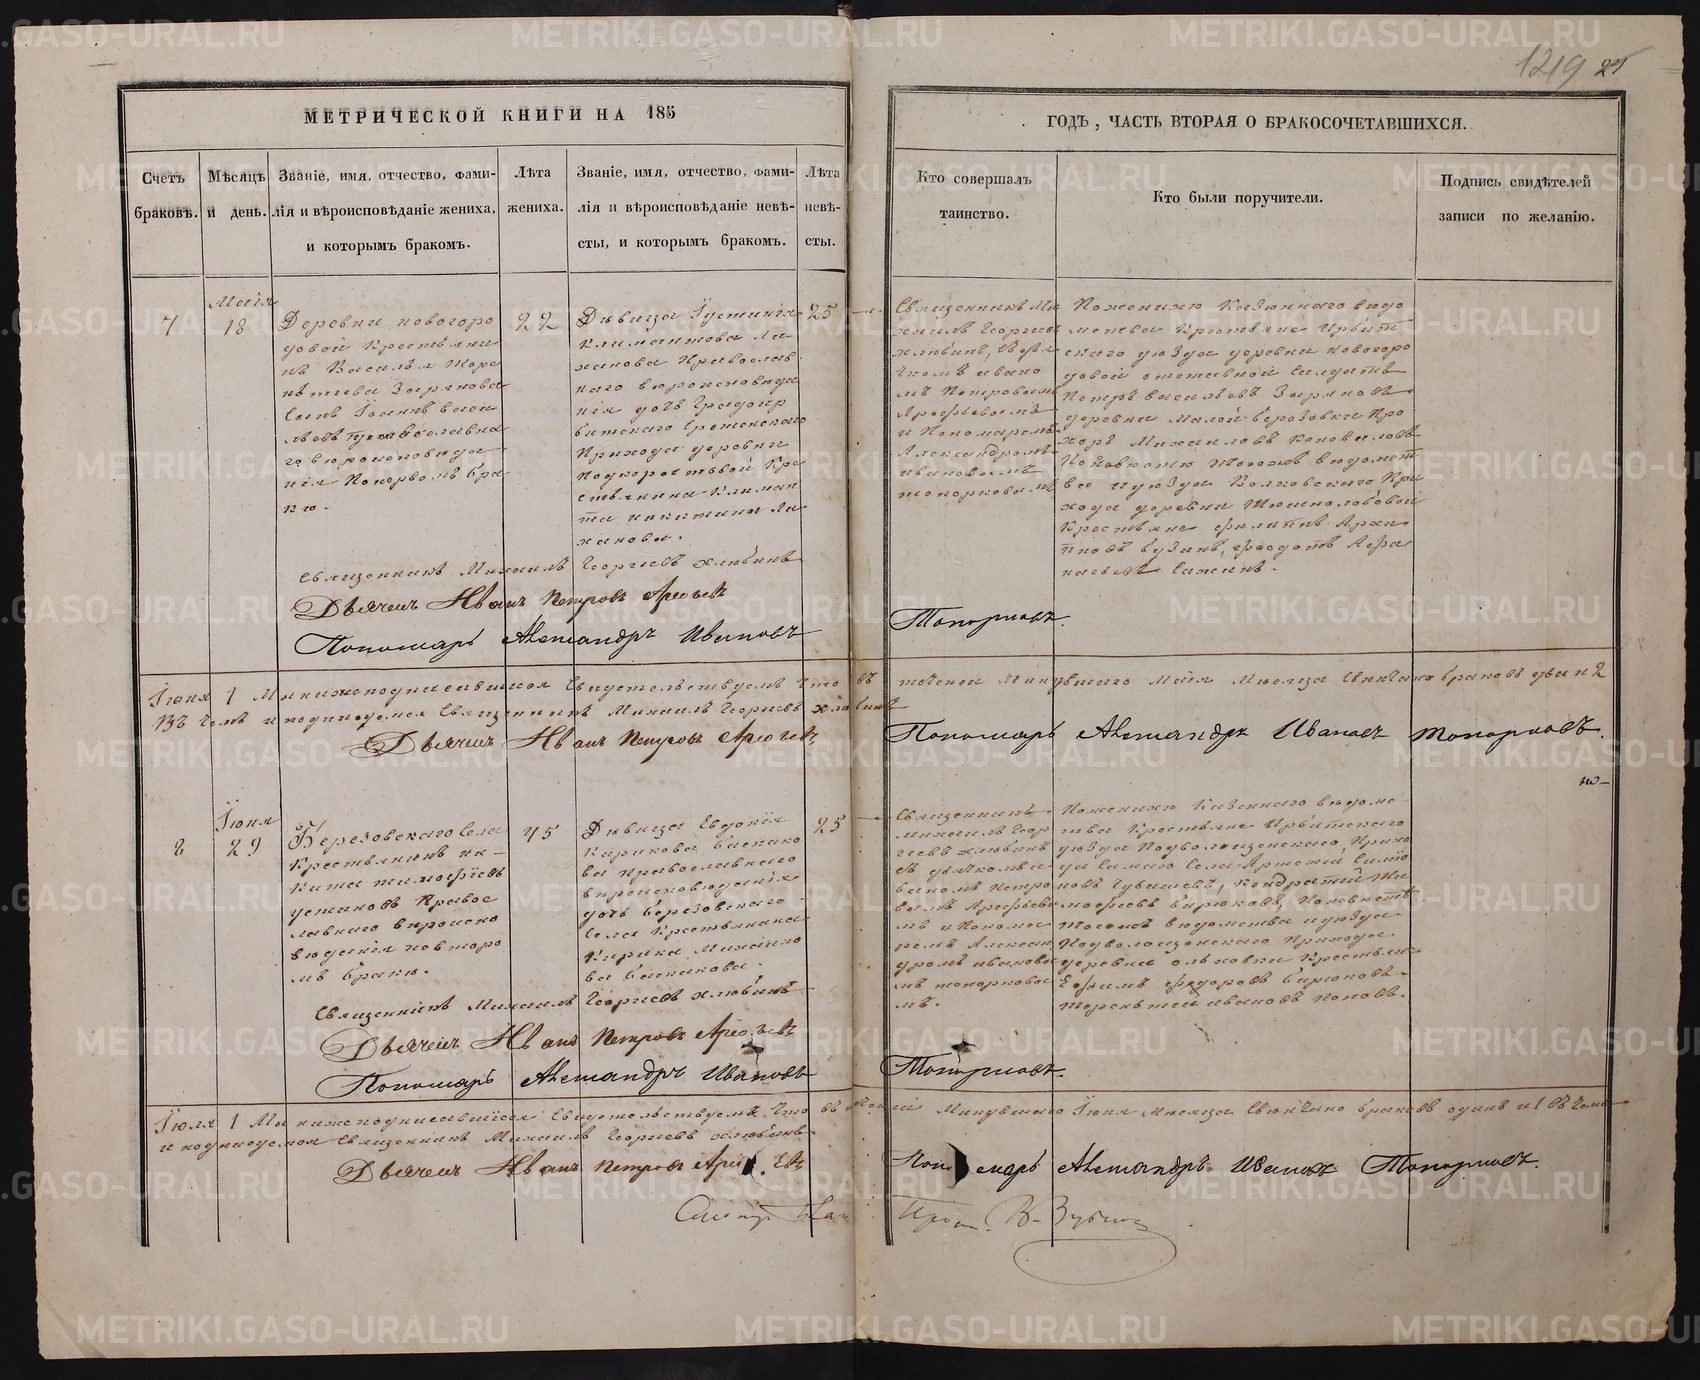 1219 21
МЕТРИЧЕСКОЙ КНИГИ НА 185
ГОДЪ, ЧАСТЬ ВТОРАЯ О БРАКОСОЧЕТАВШИХСЯ.
Счетъ браковъ.
Мѣсяцъ и день.
Званіе, имя, отчество, фами-
лія и вѣроисповѣданіе жениха,
и которымъ бракомъ.
Лѣта
жениха.
Званіе, имя, отчество, фами-
лія и вѣроисповѣданіе невѣ-
сты, и которымъ бракомъ.
Лѣта
невѣ-
сты.
Кто совершалъ
таинство.
Кто были поручители.
Подпись свидѣтелей
записи по желанію.
7
Маія
18
Деревни новогоро
довой Крестьяни
на Василья
Зырянова
Сынъ Іоаннъ Васи
льевъ Православна
го вѣроисповѣда
нія Попервомъ бра
кѣ.
22
Дѣвица Іустинія
Климантова Ли
ханова Православ
наго вѣроисповѣда
нія дочь Градоир
битскаго Срѣтенскаго
Прихода деревни
Кре
стьянина Климан
та никитина Ли
ханова.
25
Священникъ Ми
хаилъ Георгіевъ
Хлѣбинъ, съ дья
чкомъ ивано
мъ Петровымъ
Арефьевымъ
и Пономаремъ
Александромъ
ивановымъ
топорковымъ
Поженихѣ Казеннаго вѣдо
мства Крестьяне Ирбит
скаго уѣзда деревни новогоро
довой отставной Салдатъ
Петръ васильевъ Зыряновъ
деревни малой березовки Про
хоръ Михаиловъ Коноваловъ
Поневѣстѣ тогожъ вѣдомст
ва иуѣзда Волковскаго При
хода деревни
Крестьяне филипъ Архи
повъ бузинъ, федотъ Афа
насьевъ
Священникъ Михаилъ Георгіевъ Хлѣбинъ
Дьячекъ Иванъ Петровъ Арефьевъ
Пономарь Александръ Ивановъ Топорковъ.
Іюня 1 Мы нижеподписавшіеся Свидетельствуемъ что въ теченіи минувшаго Маія Мѣсяца Свѣнчано браковъ два и 2
Въ чемъ иподписуемся Священникъ Михаилъ Георгіевъ Хлѣбинъ
Дьячекъ Иванъ Петровъ Арефьевъ Пономарь Александръ Ивановъ Топорковъ.
8
Іюня
29
Березовскаго Села
Крестьянинъ ни-
кита тимофѣевъ
устиновъ Право
славнаго вѣроиспо
вѣданія повторо
мъ бракѣ.
45
Дѣвица Евдокія
Кирикова баска
ва Православнаго
вѣроисповѣданія
дочь березовскаго
Села Крестьянина
Кирика Михаило
ва
25
Священникъ
михаилъ Геор
гіевъ Хлѣбинъ
съ дьячкомъ и
ваномъ Петро
вымъ Арефьевы
мъ и Понома
ремъ Алексан
дромъ ивановы
мъ топорковы
мъ.
Поженихѣ Казеннаго вѣдомс
тва Крестьяне Ирбитскаго
уѣзда Подволошенскаго Прихо
да Самаго Села Артемій
новъ Кондратій Ти
мофѣевъ бирюковъ, Поневѣстѣ
тогожъ вѣдомства иуѣзда
Подволошенскаго Прихода
деревни ольховки Крестьяне
Ефимъ федоровъ бирюковъ
терентій ивановъ поповъ.
Священникъ Михаилъ Георгіевъ Хлѣбинъ
Дьячекъ Иванъ Петровъ Арефьевъ
Пономарь Александръ Ивановъ Топорковъ.
Іюля 1 Мы нижеподписавшіеся Свидетельствуемъ что въ теченіи минувшаго Іюня Мѣсяца Свѣнчано браковъ одинъ и 1 въ чемъ
и подписуемся Священникъ Михаилъ Георгіевъ Хлѣбинъ
Дьячекъ Иванъ Петровъ Арефьевъ Пономарь Александръ Ивановъ Топорковъ.
METRIKI.GASO-URAL.RU